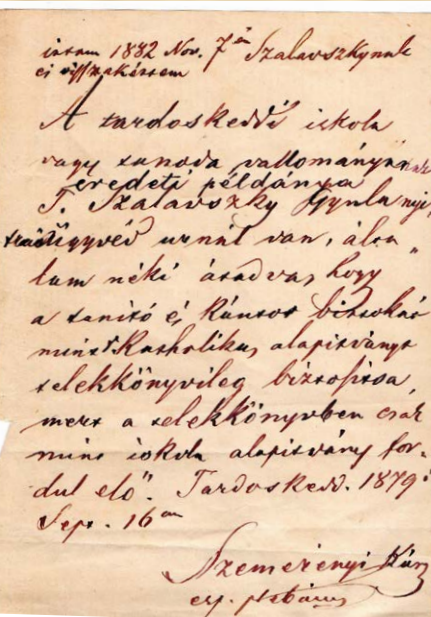 irtam 1882 Nov. 7én Szalavszkynak
és visszakértem
A tardoskeddi iskola
vagy tanoda vallományának
eredeti példánya
T. Szalavszky Gyula nyi,
trai ügyvéd urnál van, álta„
lam néki átadva, hogy
a tanitó és kántor birtokát
mint Katholikus alapitványt
telekkönyvileg biztosítsa,
mert a telekkönyvben csak
mint iskola alapitvány for„
dul elő". Tardoskedd. 1879.
Sept. 16án
Szemerényi Kár
esp. plébános